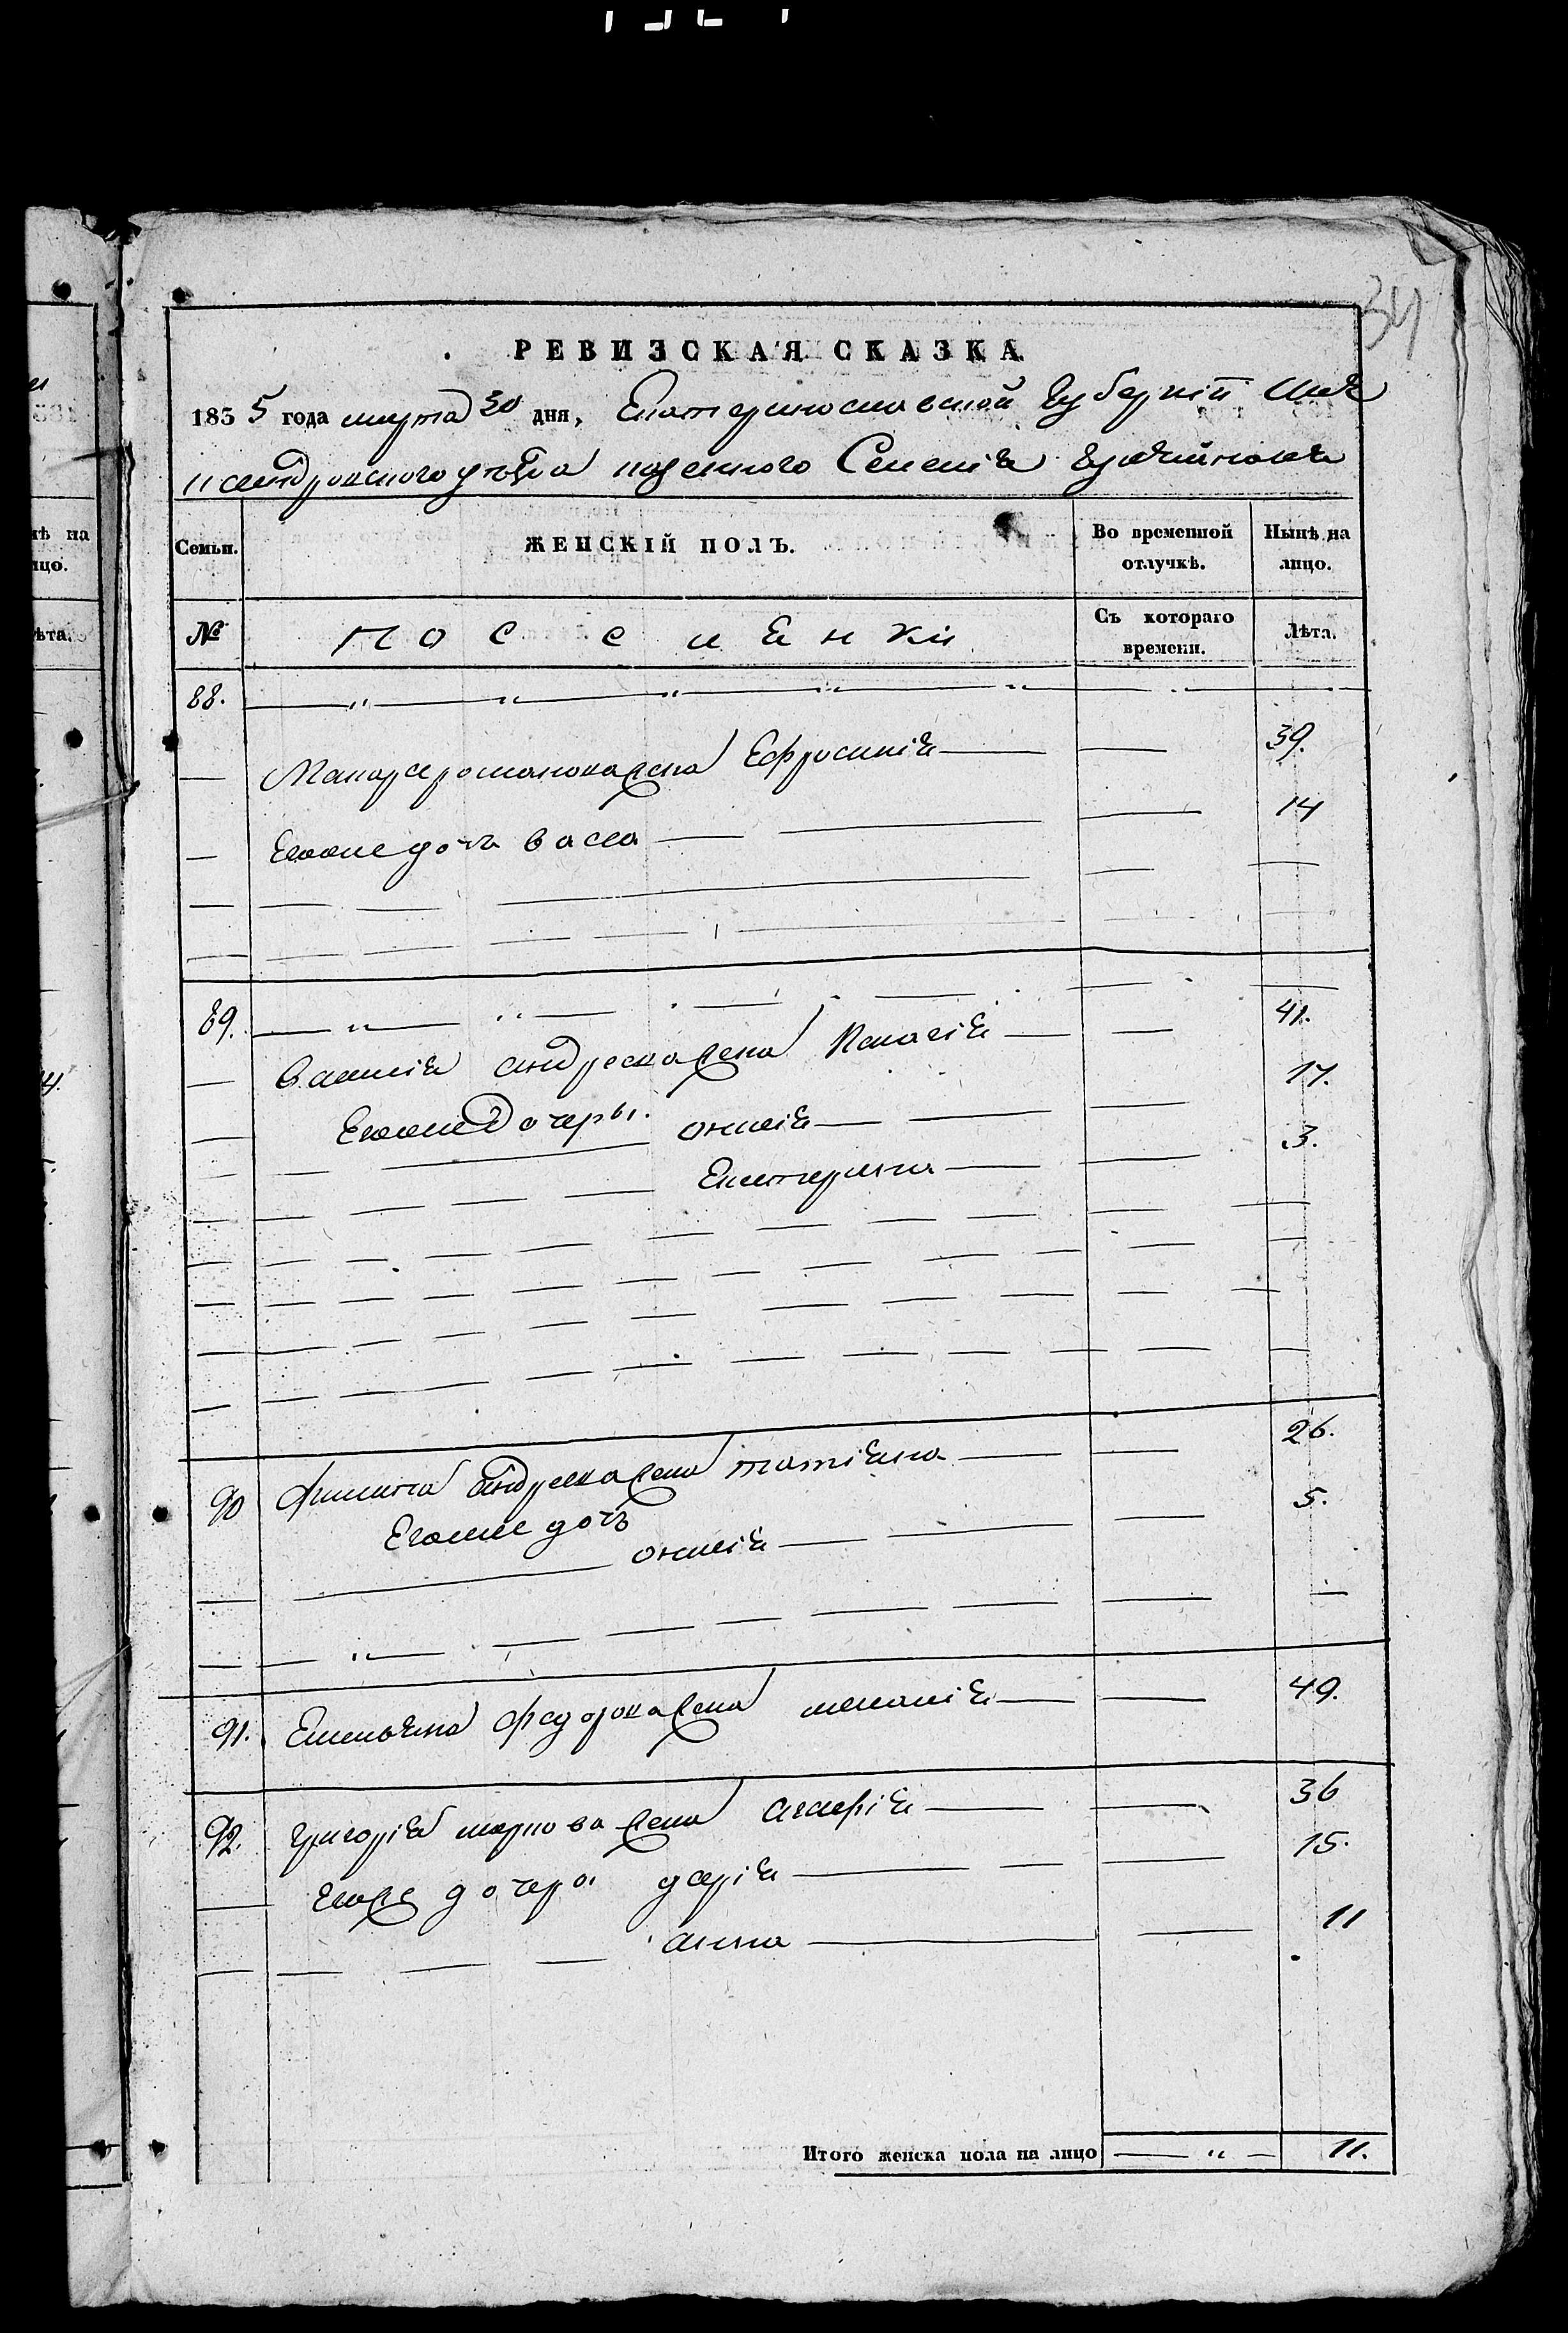 34
РЕВИЗСКАЯ СКАЗКА
1835 года марта 30 дня, Екатеринославской Губерніи Алек
сандровскаго уѣзда казенного Селенія
Семьи. ЖЕНСКІЙ ПОЛЪ. Во временной отлучкѣ. Нынѣ на лицо.
№ Поселенки Съ котораго времени. Лѣта.
88.
Макара романова жена Ефросинія 39.
Его же дочь васса 14
89.
василія андреева жена 41.
Его же дочеры. 17.
Екатерина 3.
90 андреева жена татіяна 26.
Его же дочь
5.
91. Емельяна федорова жена меланія 49.
92. григорія жена агафія 36
Его же дочеры дарія 15.
анна 11
Итого женска пола на лицо 11.